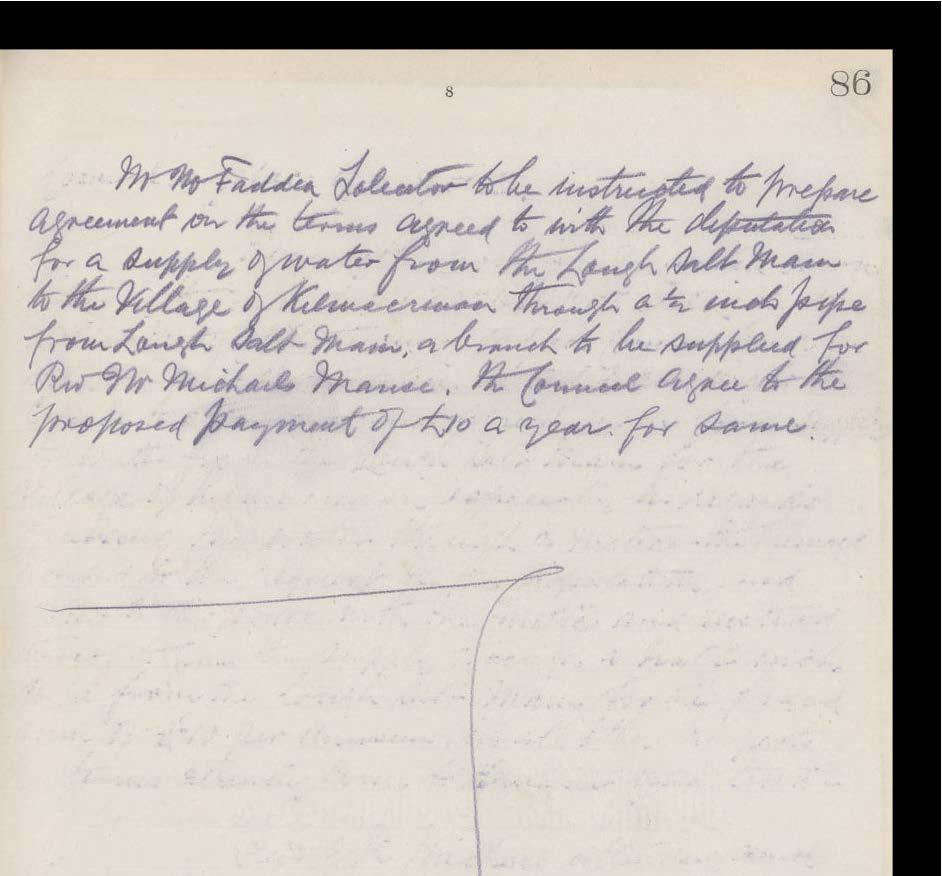 86
8
Mr McFadden Solicitor to be instructed to prepare
agreement on the terms agreed to with the deputation
for a supply of water from the Lough Salt Main
to the Village of Kilmacrenan through a ½ inch pipe
from Lough Salt Main, a branch to be supplied for
Rev Mr Michaels Manse. The Council agree to the
proposed payment of £10 a year for same.